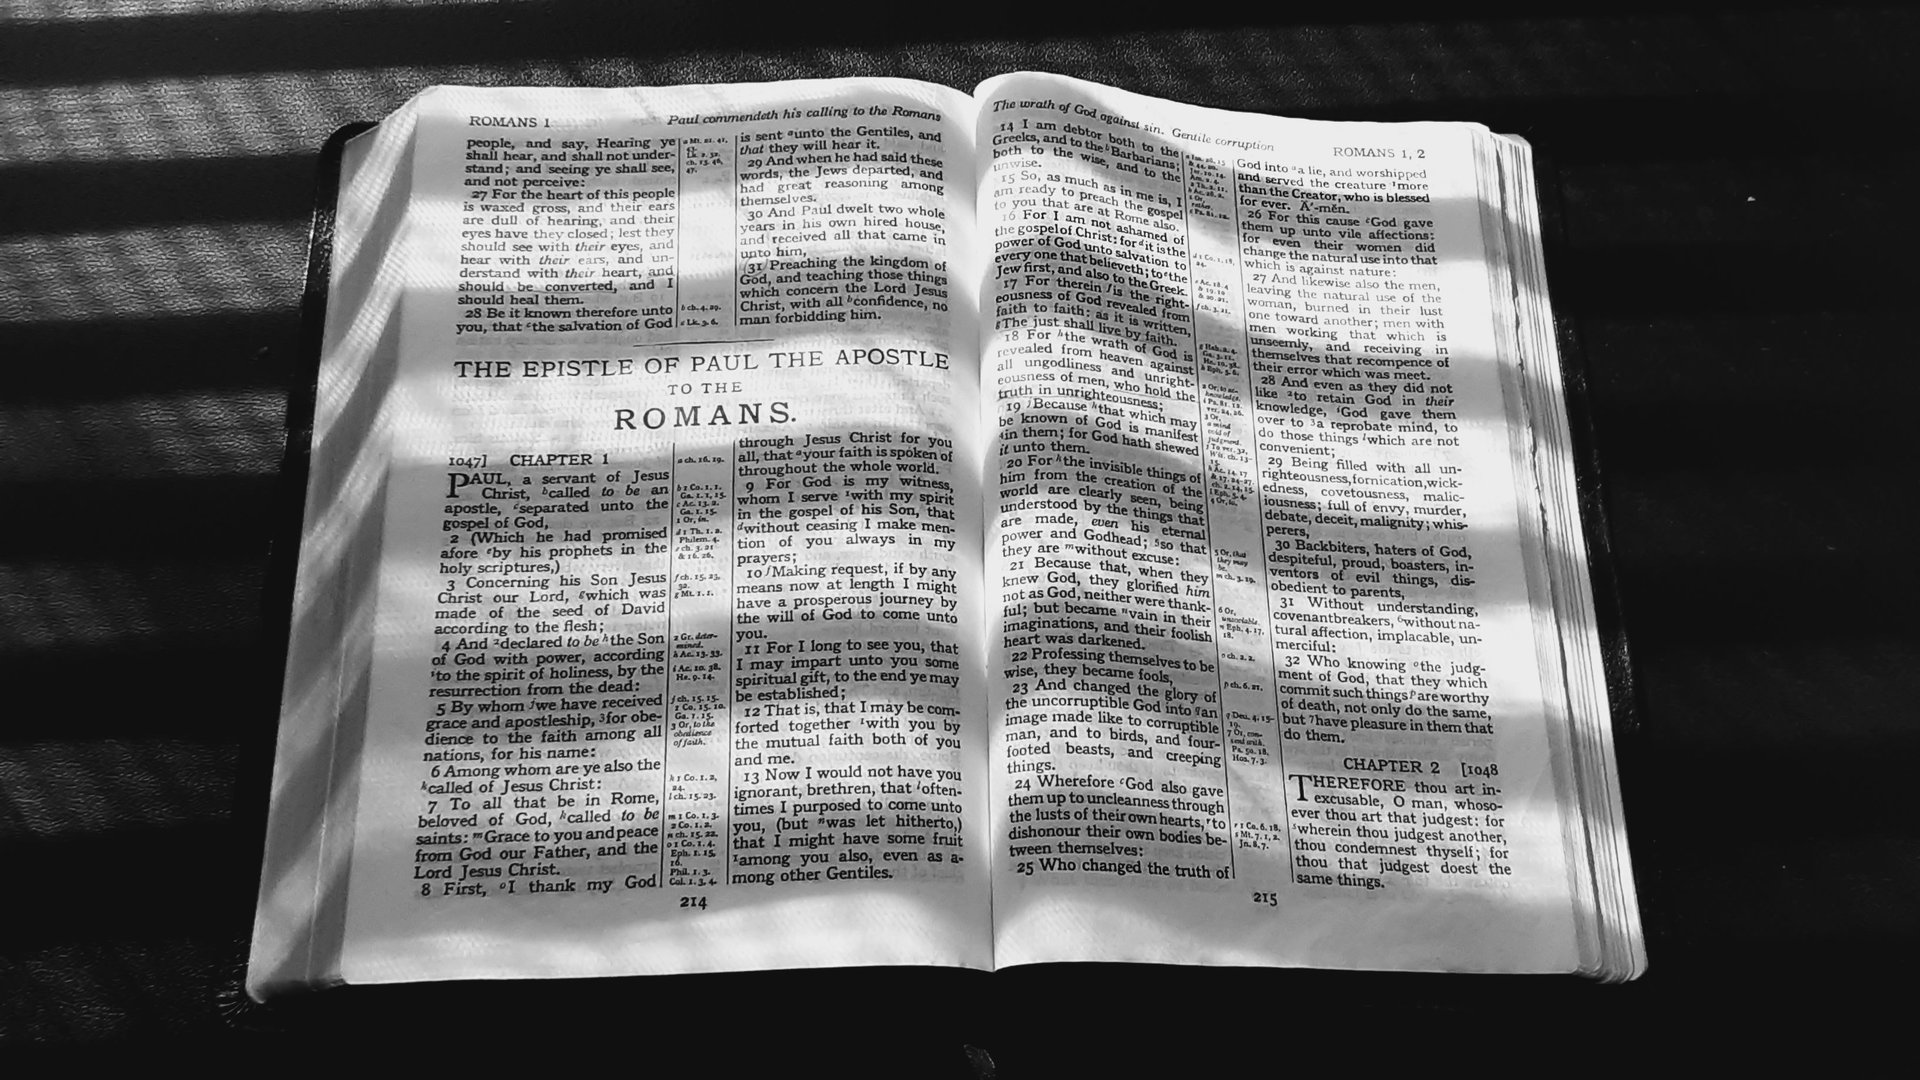 ROMANS 1
Paul commendeth his calling to the Romans
people, and say, Hearing ye
shall hear, and shall not under-
stand; and seeing ye shall see,
and not perceive:
27 For the heart of this people
is waxed gross, and their ears
are dull of hearing, and their
eyes have they closed; lest they
should see with their eyes, and
hear with their ears, and un-
derstand with their heart, and
should be converted, and I
should heal them.
28 Be it known therefore unto
you, that c the salvation of God
b ch. 4. 29.
c Lk. 3. 6.
is sent a unto the Gentiles, and
that they will hear it.
29 And when he had said these
words, the Jews departed, and
had great reasoning among
themselves.
30 And Paul dwelt two whole
years in his own hired house,
and received all that came in
unto him,
(31) Preaching the kingdom of
God, and teaching those things
which concern the Lord Jesus
Christ, with all b confidence, no
man forbidding him.
THE EPISTLE OF PAUL THE APOSTLE
TO THE
ROMANS.
1047] CHAPTER 1
PAUL, a servant of Jesus
Christ, b called to be an
apostle, c separated unto the
gospel of God,
2 (Which he had promised
afore e by his prophets in the
holy scriptures,)
3 Concerning his Son Jesus
Christ our Lord, g which was
made of the seed of David
according to the flesh;
4 And 2 declared to be h the Son
of God with power, according
i to the spirit of holiness, by the
resurrection from the dead:
5 By whom j we have received
grace and apostleship, 3 for obe-
dience to the faith among all
nations, for his name:
6 Among whom are ye also the
k called of Jesus Christ:
7 To all that be in Rome,
beloved of God, k called to be
saints: m Grace to you and peace
from God our Father, and the
Lord Jesus Christ.
8 First, o I thank my God
a ch. 16. 19.
b 1 Co. 1. 1.
Ga. 1. 1, 15.
c Ac. 13. 2.
Ga. 1. 15.
1 Or, in.
d 1 Th. 1. 2.
Philem. 4.
e ch. 3. 21
& 16. 26.
f ch. 15. 23,
32.
g Mt. 1. 1.
2 Gr. deter-
mined.
h Ac. 13. 33.
i Ac. 10. 38.
He. 9. 14.
j ch. 15. 15.
1 Co. 15. 10.
Ga. 1. 15.
3 Or, to the
obedience
of faith.
k 1 Co. 1. 2,
24.
l ch. 15. 23.
m 1 Co. 1. 3.
2 Co. 1. 2.
n ch. 15. 22.
o 1 Co. 1. 4.
Eph. 1. 15,
16.
Phil. 1. 3.
Col. 1. 3, 4.
through Jesus Christ for you
all, that a your faith is spoken of
throughout the whole world.
9 For God is my witness,
whom I serve 1 with my spirit
in the gospel of his Son, that
d without ceasing I make men-
tion of you always in my
prayers;
10 f Making request, if by any
means now at length I might
have a prosperous journey by
the will of God to come unto
you.
11 For I long to see you, that
I may impart unto you some
spiritual gift, to the end ye may
be established;
12 That is, that I may be com-
forted together 1 with you by
the mutual faith both of you
and me.
13 Now I would not have you
ignorant, brethren, that l often-
times I purposed to come unto
you, (but n was let hitherto,)
that I might have some fruit
1 among you also, even as a-
mong other Gentiles.
214
The wrath of God against sin. Gentile corruption
ROMANS 1, 2
14 I am debtor both to the
Greeks, and to the b Barbarians;
both to the wise, and to the
unwise.
15 So, as much as in me is, I
am ready to preach the gospel
to you that are at Rome also.
16 For I am not ashamed of
the gospel of Christ: for d it is the
power of God unto salvation to
every one that believeth; to e the
Jew first, and also to the Greek.
17 For therein f is the right-
eousness of God revealed from
faith to faith: as it is written,
g The just shall live by faith.
18 For h the wrath of God is
revealed from heaven against
all ungodliness and unright-
eousness of men, who hold the
truth in unrighteousness;
19 j Because k that which may
be known of God is manifest
4 in them; for God hath shewed
it unto them.
20 For k the invisible things of
him from the creation of the
world are clearly seen, being
understood by the things that
are made, even his eternal
power and Godhead; 5 so that
they are m without excuse:
21 Because that, when they
knew God, they glorified him
not as God, neither were thank-
ful; but became n vain in their
imaginations, and their foolish
heart was darkened.
22 Professing themselves to be
wise, they became fools,
23 And changed the glory of
the uncorruptible God into q an
image made like to corruptible
man, and to birds, and four-
footed beasts, and creeping
things.
24 Wherefore c God also gave
them up to uncleanness through
the lusts of their own hearts, r to
dishonour their own bodies be-
tween themselves:
25 Who changed the truth of
5 Or, that
they may
be.
m ch. 3. 19.
n Eph. 4. 17,
18.
o ch. 2. 2.
p ch. 6. 21.
q Deu. 4. 15-
19.
7 Or, con-
sent with.
Ps. 50. 18.
Hos. 7. 3.
r 1 Co. 6. 18.
s Mt. 7. 1, 2.
Jn. 8. 7.
God into a a lie, and worshipped
and served the creature 1 more
than the Creator, who is blessed
for ever. Ā'-mĕn.
26 For this cause c God gave
them up unto vile affections:
for even their women did
change the natural use into that
which is against nature:
27 And likewise also the men,
leaving the natural use of the
woman, burned in their lust
one toward another; men with
men working that which is
unseemly, and receiving in
themselves that recompence of
their error which was meet.
28 And even as they did not
like 2 to retain God in their
knowledge, i God gave them
over to 3 a reprobate mind, to
do those things l which are not
convenient;
29 Being filled with all un-
righteousness, fornication, wick-
edness, covetousness, malic-
iousness; full of envy, murder,
debate, deceit, malignity; whis-
perers,
30 Backbiters, haters of God,
despiteful, proud, boasters, in-
ventors of evil things, dis-
obedient to parents,
31 Without understanding,
covenantbreakers, 6 without na-
tural affection, implacable, un-
merciful:
32 Who knowing o the judg-
ment of God, that they which
commit such things p are worthy
of death, not only do the same,
but 7 have pleasure in them that
do them.
CHAPTER 2 [1048
THEREFORE thou art in-
excusable, O man, whoso-
ever thou art that judgest: for
s wherein thou judgest another,
thou condemnest thyself; for
thou that judgest doest the
same things.
215